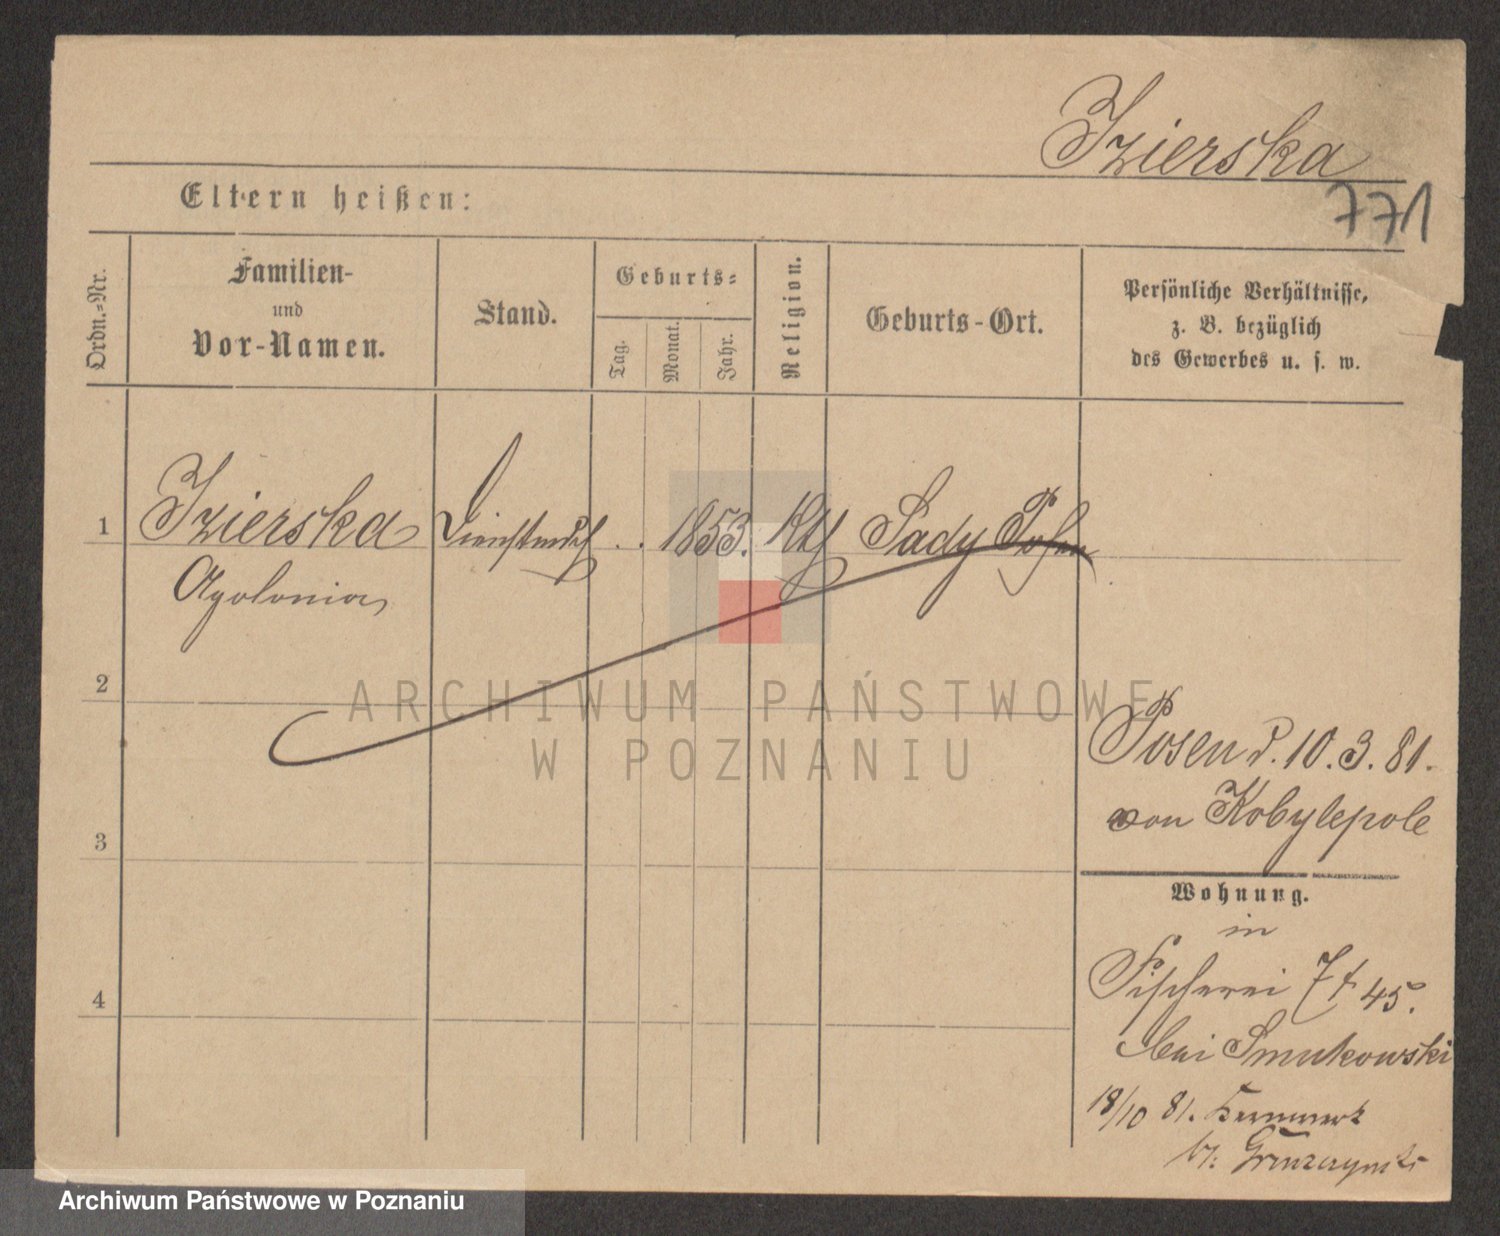 Izierska
771
Eltern heißen:
Ordn.-Nr.
Familien-
und
Vor-Namen.
Stand.
Geburts-
Tag.
Monat.
Jahr.
Religion.
Geburts-Ort.
Persönliche Verhältnisse,
z. B. bezüglich
des Gewerbes u. s. w.
1
Izierska
Apolonia
1853.
Kth
Sady Posen
2
3
4
Posen d. 10.3.81.
von Kobylepole
Wohnung.
in
Fischerei 7 t 45.
bei Smukowski
18/10 81.
ARCHIWUM PAŃSTWOWE
W POZNANIU
Archiwum Państwowe w Poznaniu